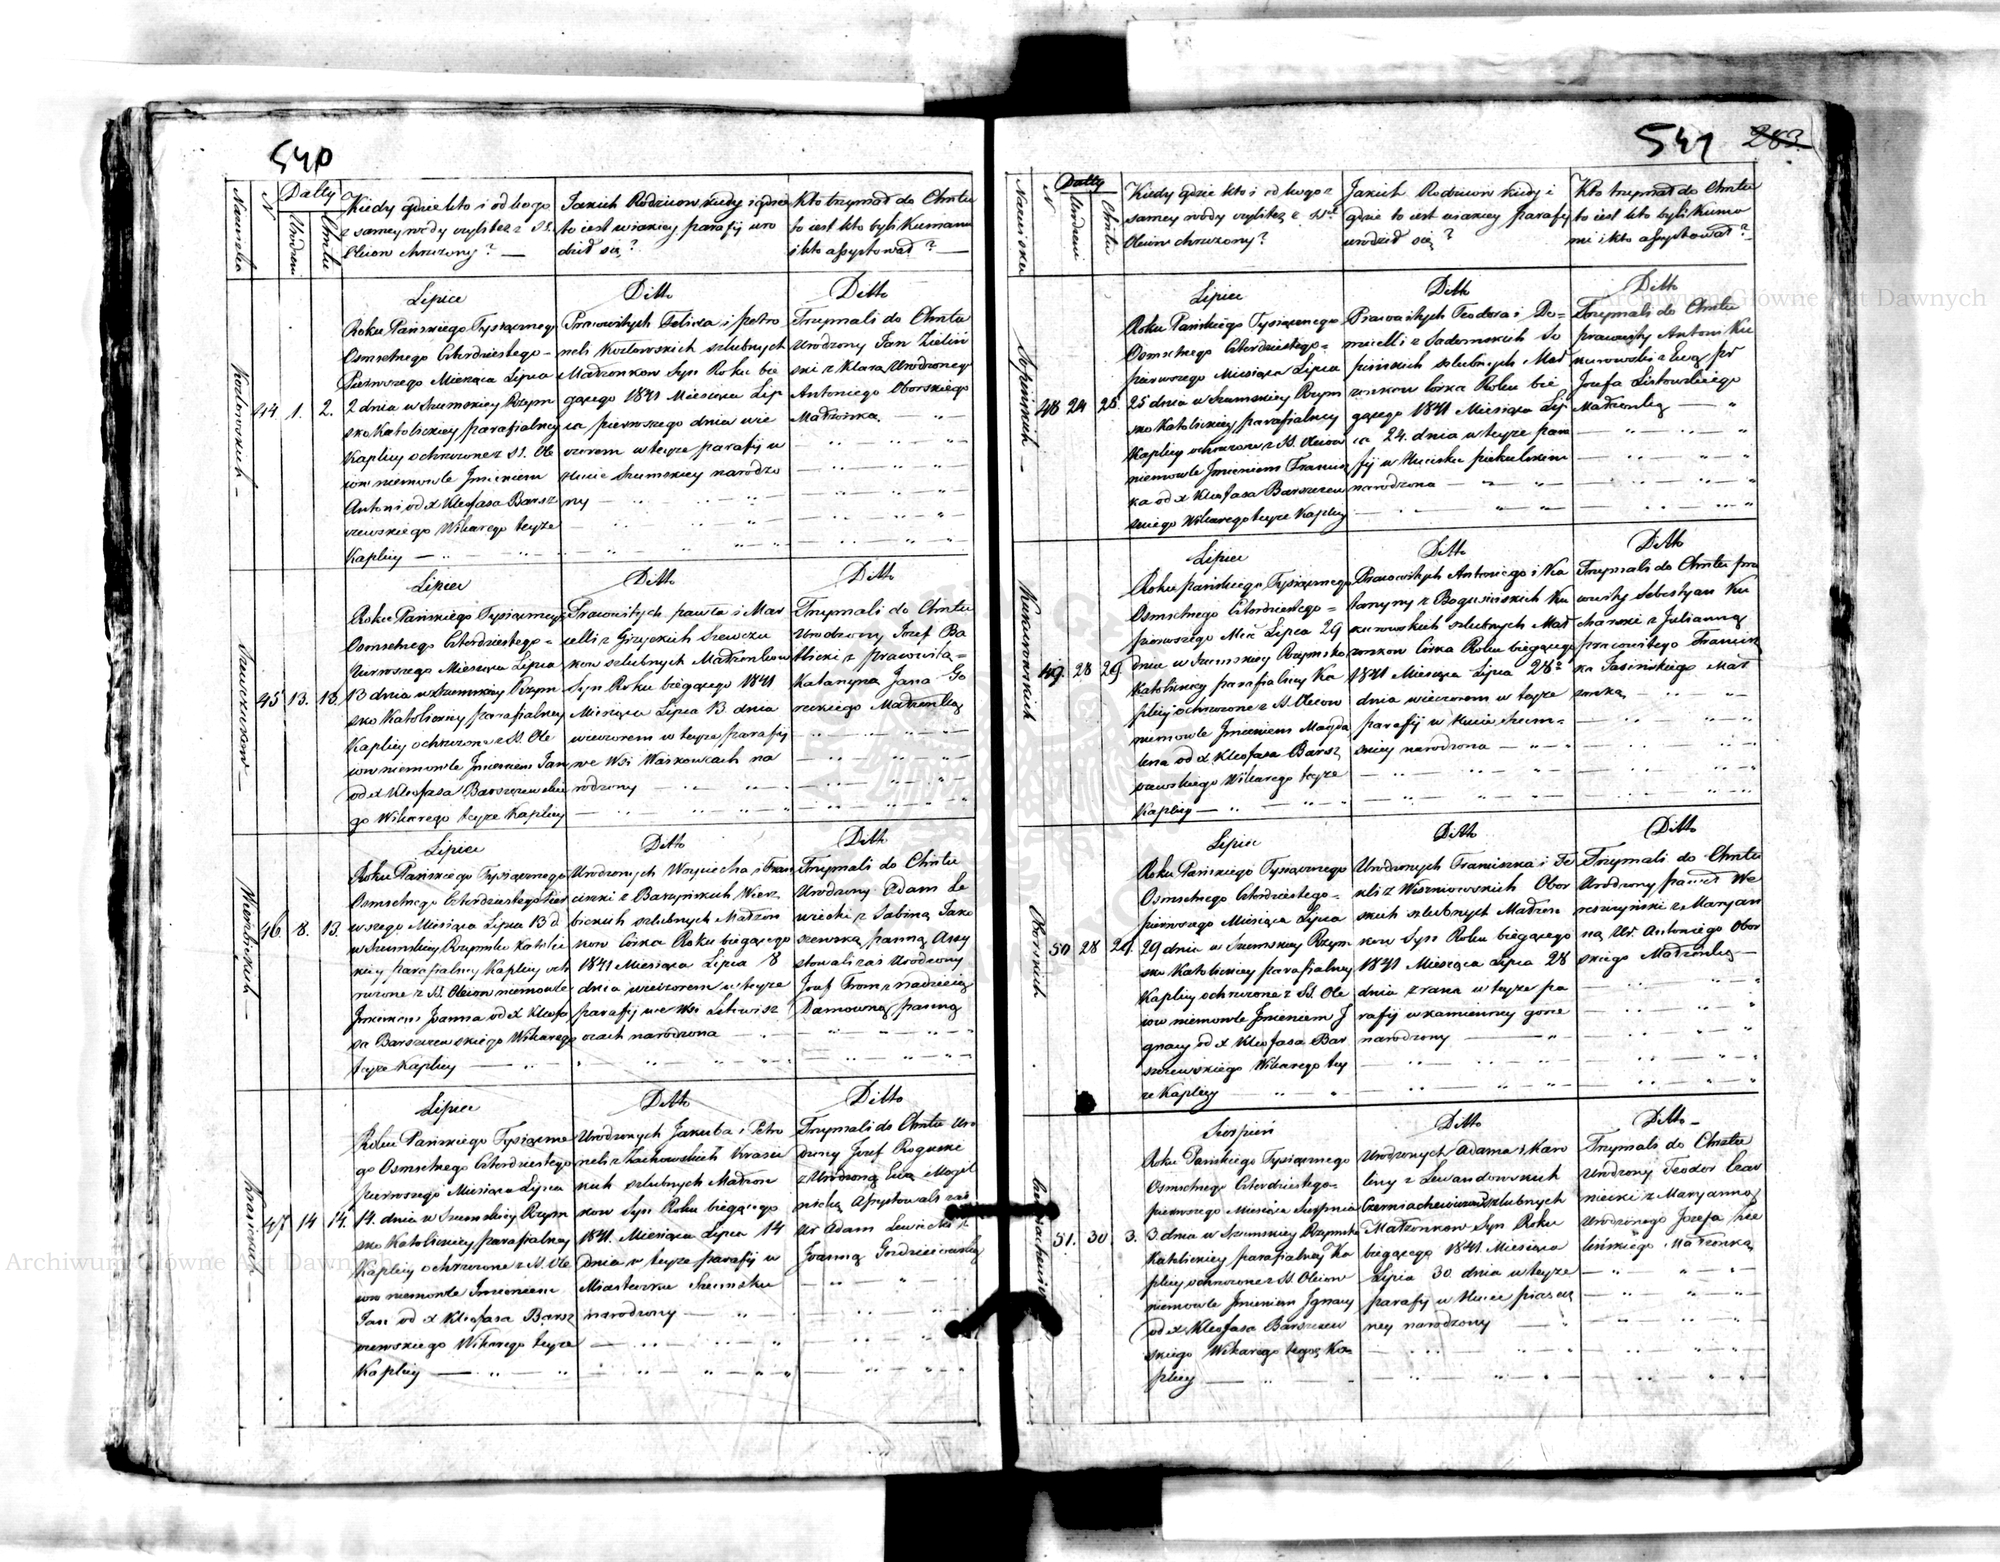 540
Nazwiska
N
Datty
Urodzen
Chrztu
Kiedy gdzie kto i od kogo
z samey wody czyli też z SS.
Oleiow chrzczony? —
Jakich Rodzicow kiedy i gdzie
to iest w iakiey parafij uro
dził się?
Kto trzymał do Chrztu
to iest kto byli Kumami
i kto assystował? —
Kozłowskich —
44
1.
2.
Lipiec
Roku Pańskiego Tysiącznego
Osmsetnego Czterdziestego -
Pierwszego Miesiąca Lipca
2 dnia w Szumskiey Rzym
sko Katolickiey parafialney
Kaplicy ochrzczone z SS. Ole
iow niemowle Imieniem
Antoni od X Kleofasa Barsz
czewskiego Wikarego teyże
Kaplicy —
Ditto
Pracowitych Felixa i Petro
neli Kozłowskich szlubnych
Małżonkow Syn Roku bie
gącego 1841 Miesiąca Lip
ca pierwszego dnia wie
czorem w teyze parafij w
Hucie Szumskiey narodzo
ny —
Ditto
Trzymali do Chrztu
Urodzony Jan Zieliń
ski z Klara Urodzonego
Antoniego Oborskiego
Małżonka.
Szewczukow —
45
13.
13.
Lipiec
Roku Pańskiego Tysiącznego
Osmsetnego Czterdziestego =
Pierwszego Miesiąca Lipca
13 dnia w Szumskiey Rzym
sko Katolickiey parafialney
Kaplicy ochrzczone z SS. Ole
iow niemowle Imieniem Jan
od X Kleofasa Barszczewskie
go Wikarego teyze Kaplicy
Ditto
Pracowitych Pawła i Mar
celli z Gizyckich Szewczu
kow szlubnych Małżonkow
Syn Roku biegącego 1841
Miesiąca Lipca 13 dnia
wieczorem w teyze parafij
we Wsi Waskowcach na
rodzony —
Ditto
Trzymali do Chrztu
Urodzony Jozef Ba
blicki z pracowitą =
Katarzyna Jana Go
reckiego Małżonką
Wierzbickich —
46
8.
13.
Lipiec
Roku Pańskiego Tysiącznego
Osmsetnego Czterdziestego Pier
wszego Miesiąca Lipca 13 d
w Szumskiey Rzymsko Katolic
kiey parafialney Kaplicy och
rzczone z SS. Oleiow niemowle
Imieniem Joanna od X Kleofa
sa Barszczewskiego Wikarego
teyze Kaplicy —
Ditto
Urodzonych Woyciecha i Fran
ciszki z Barzyńskich Wierz
bickich szlubnych Małżon
kow Córka Roku biegącego
1841 Miesiąca Lipca 8
dnia wieczorem w teyze
parafij we Wsi Letowisz
czach narodzona
Ditto
Trzymali do Chrztu
Urodzony Adam Le
wicki z Sabiną Jako
szewską panną Assy
stowali zaś Urodzony
Jozef From z nadzieią
Damowną panną
Krasickich —
47
14
14.
Lipiec
Roku Pańskiego Tysiączne
go Osmsetnego Czterdziestego
pierwszego Miesiąca Lipca
14. dnia w Szumskiey Rzym
sko Katolickiey parafialney
Kaplicy ochrzczone z SS. Ole
iow niemowle Imieniem
Jan od X Kleofasa Barsz
czewskiego Wikarego teyze
Kaplicy —
Ditto
Urodzonych Jakuba i Petro
neli z Żuchowskich Krasic
kich szlubnych Małżon
kow Syn Roku biegącego
1841. Miesiąca Lipca 14
Dnia w teyze parafij w
Miasteczku Szumsku
narodzony —
Ditto
Trzymali do Chrztu Uro
dzony Jozef Roguski
z Urodzoną Ewą Mogil
nicką Assystowali zaś
Ur Adam Lewicki z
Joanną
541
283
Nazwiska
N
Datty
Urodzen
Chrztu
Kiedy gdzie kto i od kogo z
samey wody czyli też z SS.
Oleiow chrzczony?
Jakich Rodzicow kiedy i
gdzie to iest w iakiey parafij
urodził się?
Kto trzymał do Chrztu
to iest kto byli Kumo
mi i kto assystował?
48
24
25.
Lipiec
Roku Pańskiego Tysiącznego
Osmsetnego Czterdziestego =
pierwszego Miesiąca Lipca
25 dnia w Szumskiey Rzym
sko Katolickiey parafialney
Kaplicy ochrzczone z SS. Oleiow
niemowle Imieniem Francisz
ka od X Kleofasa Barszczew
skiego Wikarego teyze Kaplicy
Ditto
Pracowitych Teodora i Do=
micelli z Sadomskich So
pińskich szlubnych Mał
żonkow Córka Roku bie
gącego 1841 Miesiąca Lip
ca 24. dnia w teyze para
fij w Hucisku pikulskim
narodzona —
Ditto
Trzymali do Chrztu
pracowity Antoni Ku
kurowski z Ewą pr
Jozefa Listowskiego
Małżonką —
Kukurowskich
49.
28
29.
Lipiec
Roku pańskiego Tysiącznego
Osmsetnego Czterdziestego =
pierwszego Mca Lipca 29
dnia w Szumskiey Rzymsko
Katolickiey parafialney Ka
plicy ochrzczone z SS. Oleiow
niemowle Imieniem Magda
lena od X Kleofasa Barsz
czewskiego Wikarego teyze
Kaplicy —
Ditto
Pracowitych Antoniego i Ka
tarzyny z Bogusińskich Ku
kurowskich szlubnych Mał
żonkow Córka Roku biegącego
1841 Miesiąca Lipca 28
dnia wieczorem w teyze
parafij w Hucie Szum=
skiey narodzona —
Ditto
Trzymali do Chrztu pra
cowity Sebestyan Ku
charski z Julianną
pracowitego Francisz
ka Jasińskiego Mał
żonką
Oborskich
50
28
29.
Lipiec
Roku Pańskiego Tysiącznego
Osmsetnego Czterdziestego-
pierwszego Miesiąca Lipca
29 dnia w Szumskiey Rzym
sko Katolickiey parafialney
Kaplicy ochrzczone z SS. Ole
iow niemowle Imieniem I
gnacy od X Kleofasa Bar
szczewskiego Wikarego tey
ze Kaplicy
Ditto
Urodzonych Franciszka i Te
kli z Wiszniowskich Obor
skich szlubnych Małżon
kow Syn Roku biegącego
1841 Miesiąca Lipca 28
dnia z rana w teyze pa
rafij w kamienney gorze
narodzony —
Ditto
Trzymali do Chrztu
Urodzony paweł We
reszczyński z Maryan
ną Ur. Antoniego Obor
skiego Małżonką —
51.
30
3.
Sierpień
Roku Pańskiego Tysiącznego
Osmsetnego Czterdziestego-
pierwszego Miesiąca Sierpnia
3 dnia w Szumskiey Rzymsko
Katolickiey parafialney Ka
plicy ochrzczone z SS. Oleiow
niemowle Imieniem Ignacy
od X Kleofasa Barszczew
skiego Wikarego tegoż Ka-
plicy —
Ditto
Urodzonych Adama i Karo
liny z Lewandowskich
Czerniachowiczow szlubnych
Małżonkow Syn Roku
biegącego 1841. Miesiąca
Lipca 30. dnia w teyze
parafij w Hucie piasecz
ney narodzony —
Ditto —
Trzymali do Chrztu
Urodzony Teodor Czar
niecki z Maryanną
Urodzonego Jozefa Zie
lińskiego Małżonką
Archiwum Główne Akt Dawnych
Archiwum Główne Akt Dawnych